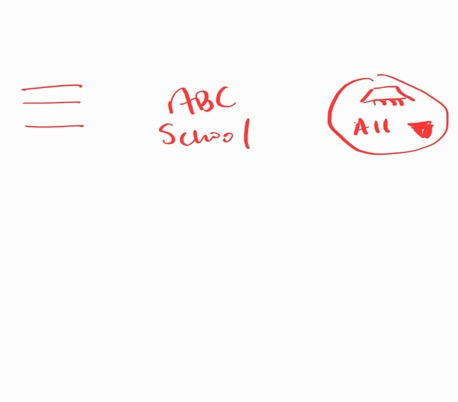 ABC
School
All